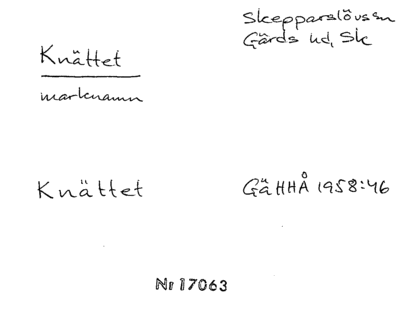 Skepparslövs sn
Gärds hd, Sk
Knättet
marknamn
Knättet
GäHHÅ 1958:46
Nr 17063